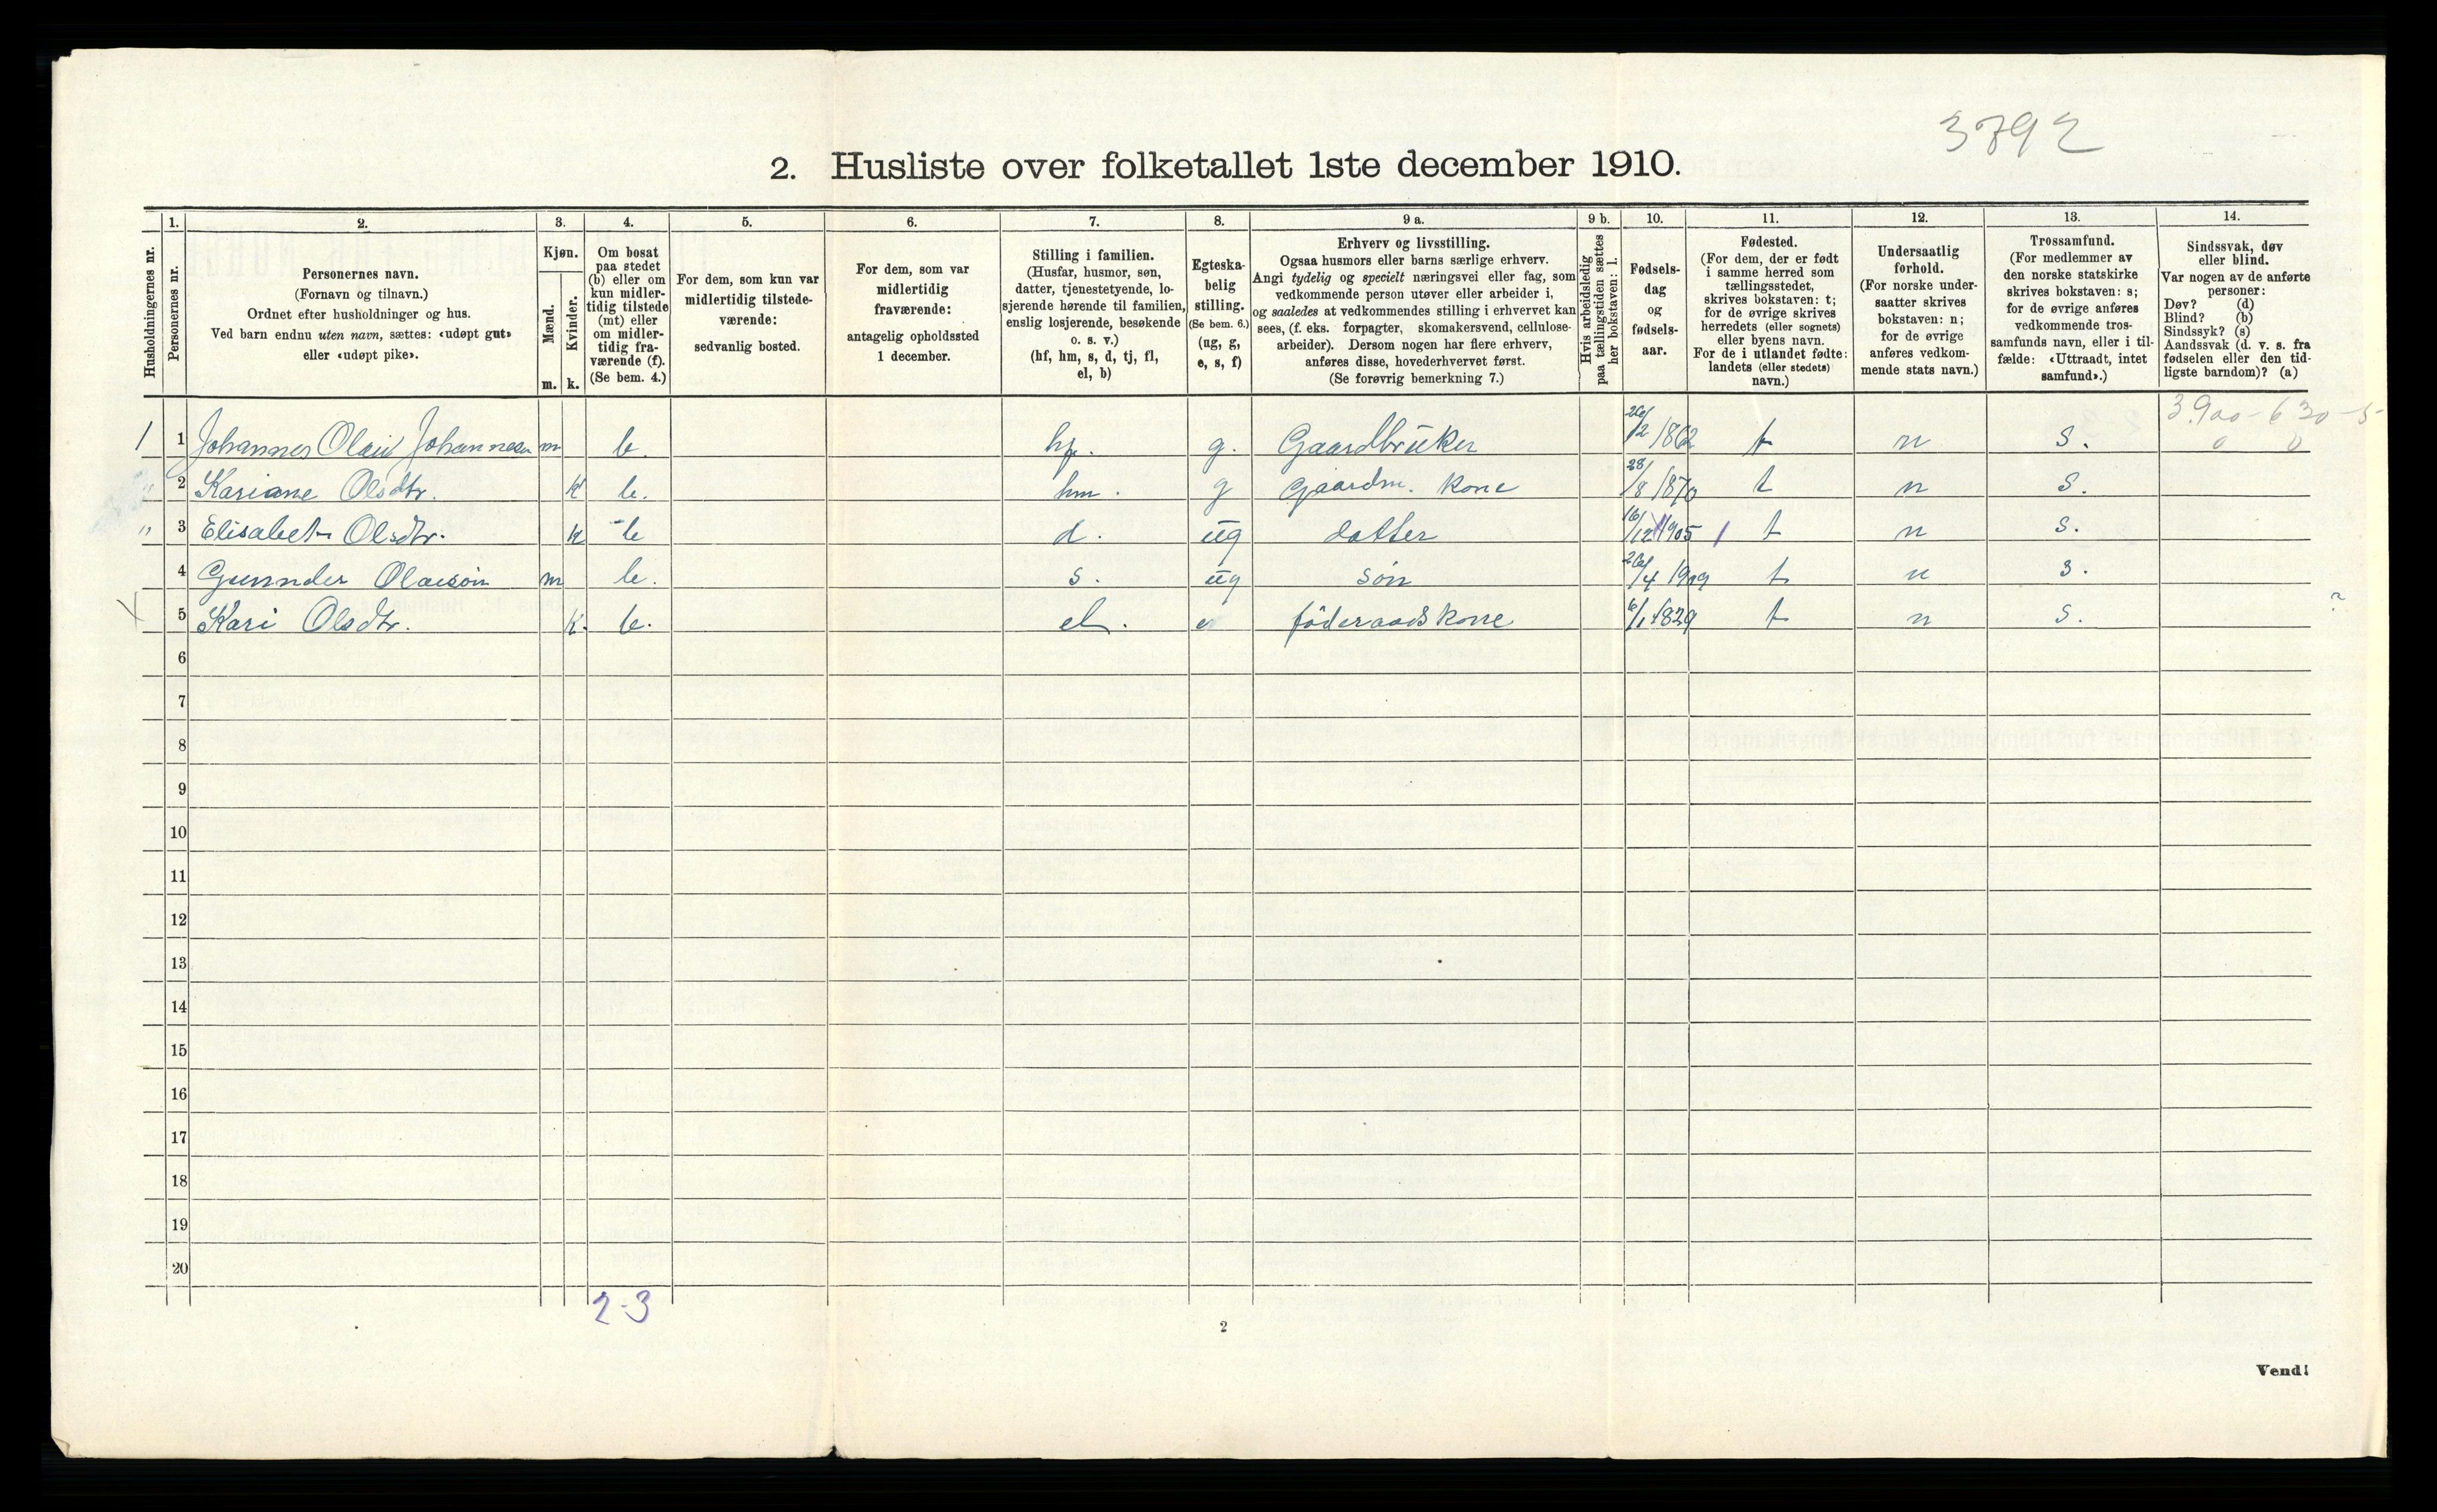 3792
2. Husliste over folketallet 1ste december 1910.
Husholdningernes nr.
1.
Personernes nr.
2.
Personernes navn.
(Fornavn og tilnavn.)
Ordnet efter husholdninger og hus.
Ved barn endnu uten navn, sættes: «udøpt gut»
eller «udøpt pike».
3.
Kjøn.
Mænd.
Kvinder.
m. k.
4.
Om bosat
paa stedet
(b) eller om
kun midler-
tidig tilstede
(mt) eller
om midler-
tidig fra-
værende (f).
(Se bem. 4.)
5.
For dem, som kun var
midlertidig tilstede-
værende:
sedvanlig bosted.
6.
For dem, som var
midlertidig
fraværende:
antagelig opholdssted
1 december.
7.
Stilling i familien.
(Husfar, husmor, søn,
datter, tjenestetyende, lo-
sjerende hørende til familien,
enslig losjerende, besøkende
o. s. v.)
(hf, hm, s, d, tj, fl,
el, b)
8.
Egteska-
belig
stilling.
(Se bem. 6.)
(ug, g,
e, s, f)
9 a.
Erhverv og livsstilling.
Ogsaa husmors eller barns særlige erhverv.
Angi tydelig og specielt næringsvei eller fag, som
vedkommende person utøver eller arbeider i,
og saaledes at vedkommendes stilling i erhvervet kan
sees, (f. eks. forpagter, skomakersvend, cellulose-
arbeider). Dersom nogen har flere erhverv,
anføres disse, hovederhvervet først.
(Se forøvrig bemerkning 7.)
9 b.
Hvis arbeidsledig
paa tællingstiden sættes
her bokstaven: l.
10.
Fødsels-
dag
og
fødsels-
aar.
11.
Fødested.
(For dem, der er født
i samme herred som
tællingsstedet,
skrives bokstaven: t;
for de øvrige skrives
herredets (eller sognets)
eller byens navn.
For de i utlandet fødte:
landets (eller stedets)
navn.)
12.
Undersaatlig
forhold.
(For norske under-
saatter skrives
bokstaven: n;
for de øvrige
anføres vedkom-
mende stats navn.)
13.
Trossamfund.
(For medlemmer av
den norske statskirke
skrives bokstaven: s;
for de øvrige anføres
vedkommende tros-
samfunds navn, eller i til-
fælde: «Uttraadt, intet
samfund».)
14.
Sindssvak, døv
eller blind.
Var nogen av de anførte
personer:
Døv? (d)
Blind? (b)
Sindssyk? (s)
Aandssvak (d. v. s. fra
fødselen eller den tid-
ligste barndom)? (a)
3.900 - 6 30 - 5-
0 0
1 1 Johannes Olai Johannesen m b. hf. g. Gaardbrüker 26/2 1862 t n s.
" 2 Kariane Olsdtr. k b. hm. g Gaardm. kone 28/8 1870 t n s.
" 3 Elisabet Olsdtr. k b d. üg datter 16/12 1905 t n s.
4 Gunnder Olaisön m b. s. üg sön 26/4 1909 t n s.
X 5 Kari Olsdtr. k. b. el. e föderaadskone 6/1 1829 t n s. ?
6
7
8
9
10
11
12
13
14
15
16
17
18
19
20
2-3
2
Vend!